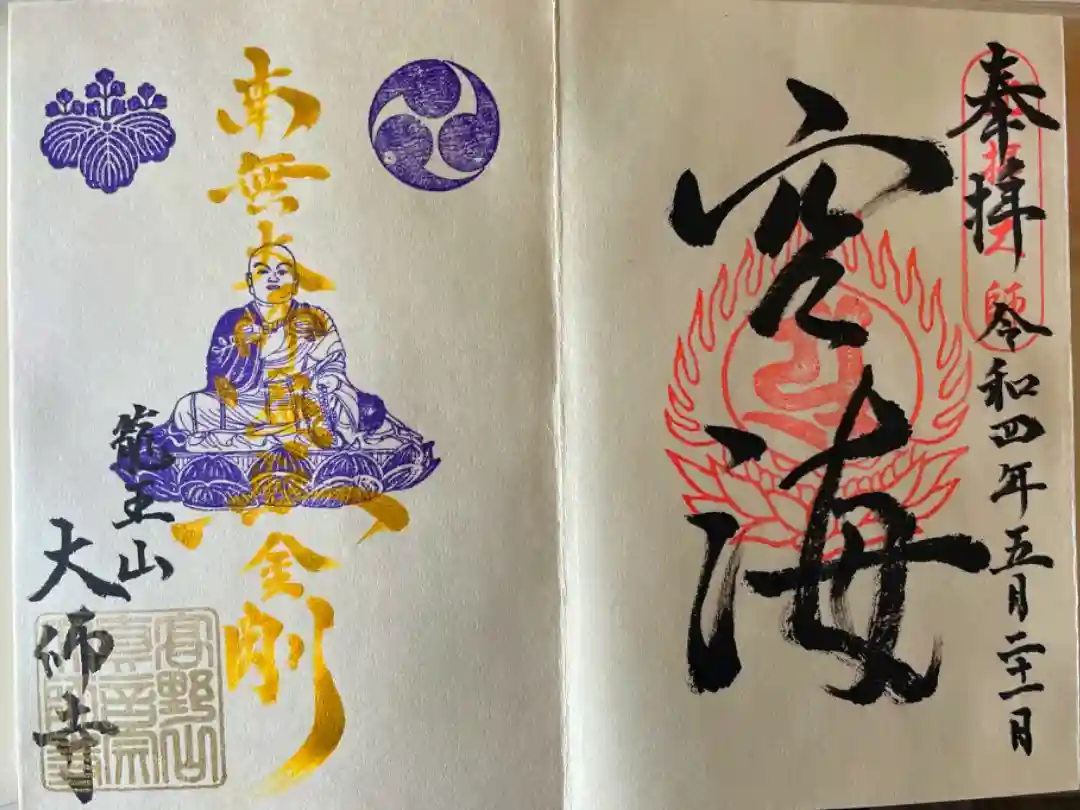 奉拝
令和四年五月二十一日
空海
南無大師遍照金剛
龍王山
大師寺
高野山
真言宗
大師寺